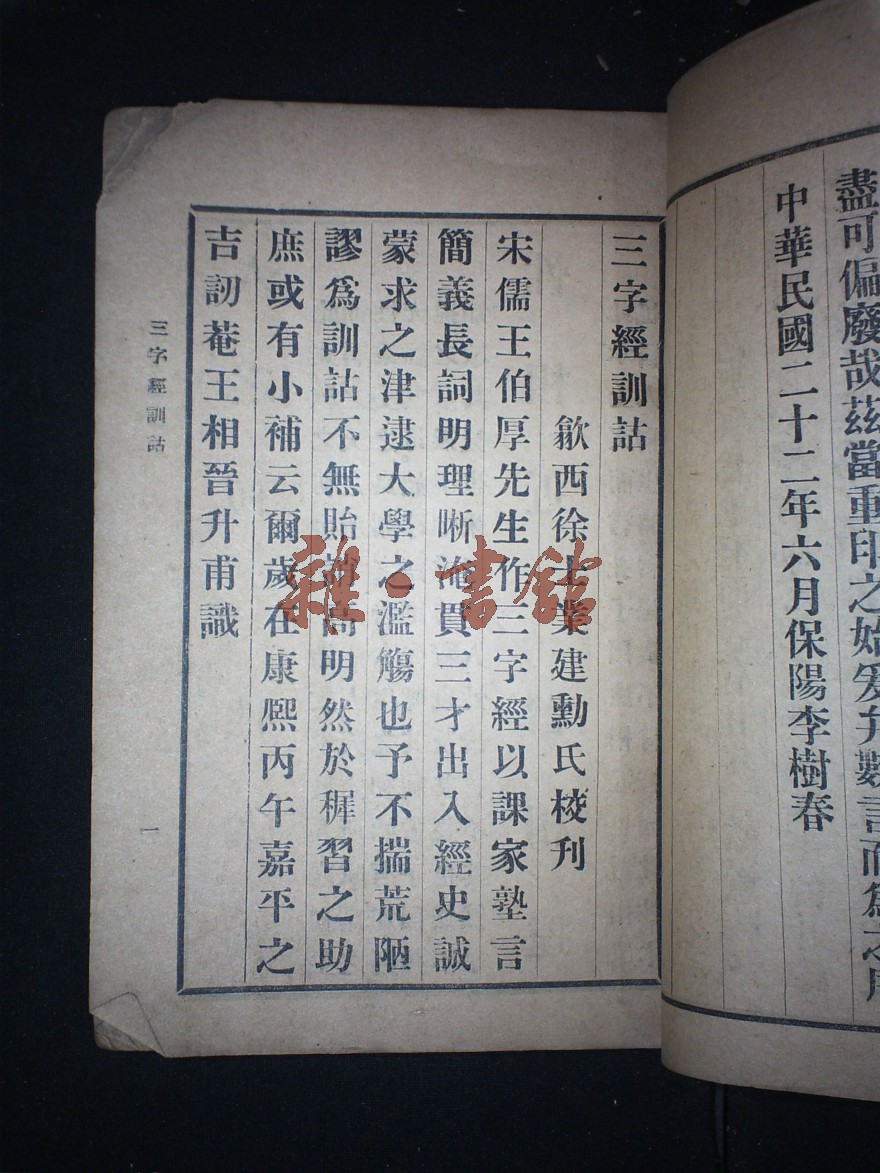 盡可偏廢哉茲當重印之始爰弁數言而爲之
中華民國二十二年六月保陽李樹春
三字經訓詁
歙西徐士業建勳氏校刊
宋儒王伯厚先生作三字經以課家塾言
簡義長詞明理晰淹貫三才出入經史誠
蒙求之津逮大學之濫觴也予不揣荒陋
謬爲訓詁不無貽誚高明然於穉習之助
庶或有小補云爾歲在康熙丙午嘉平之
吉訒菴王相晉升甫識
三字經訓詁
一
雜·書館